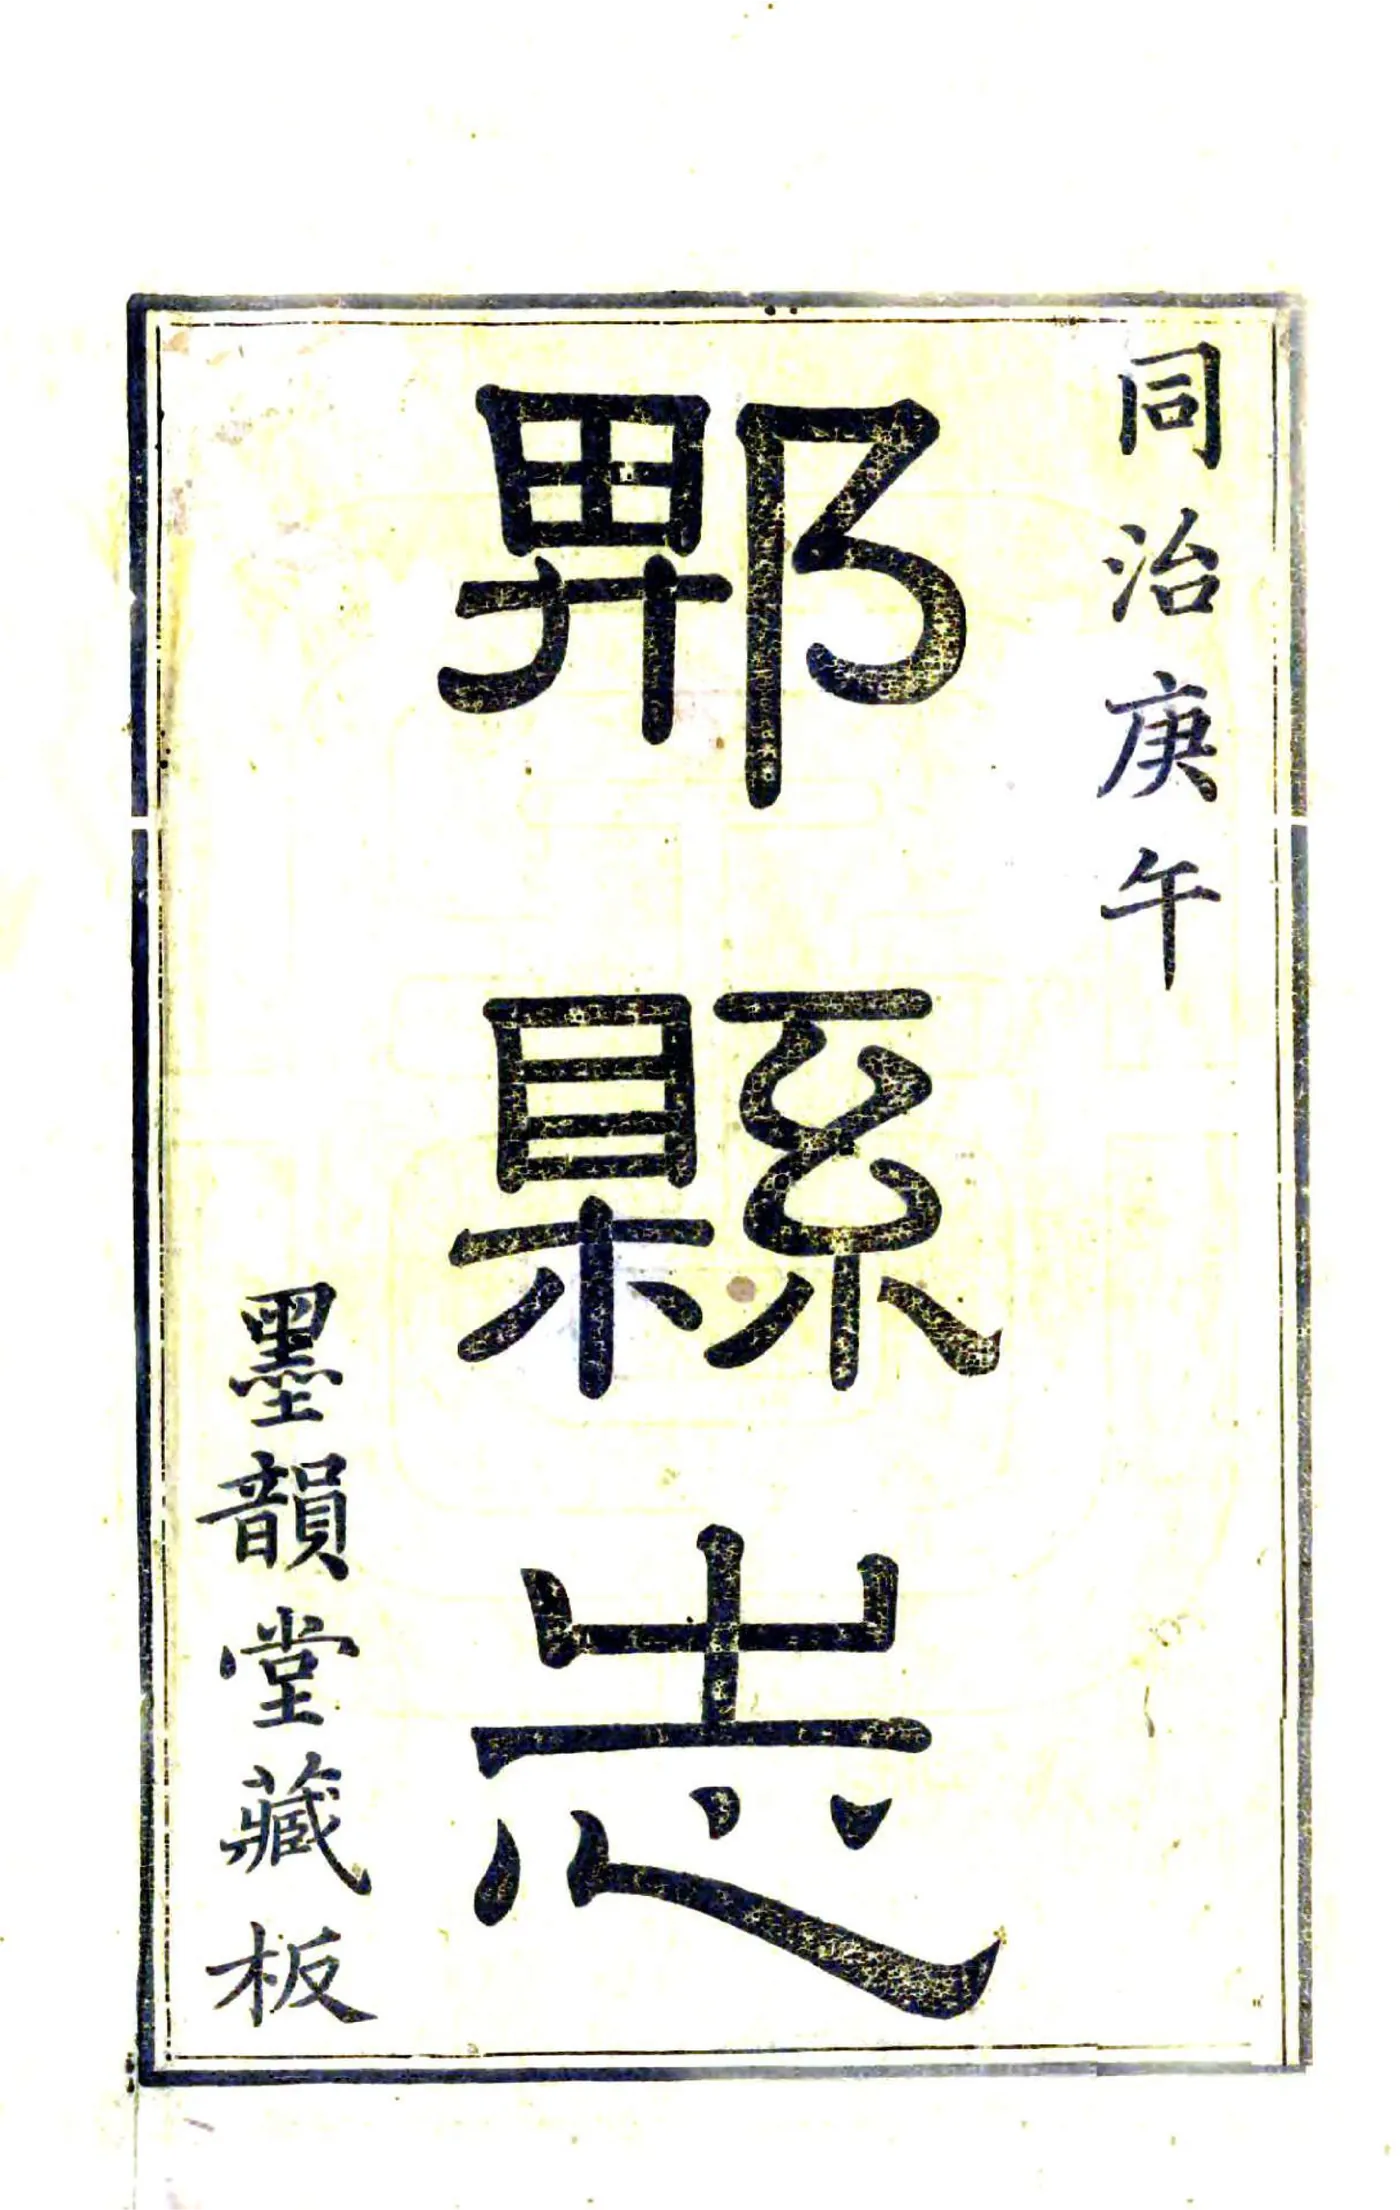 同治庚午
郫縣志
墨韻堂藏板